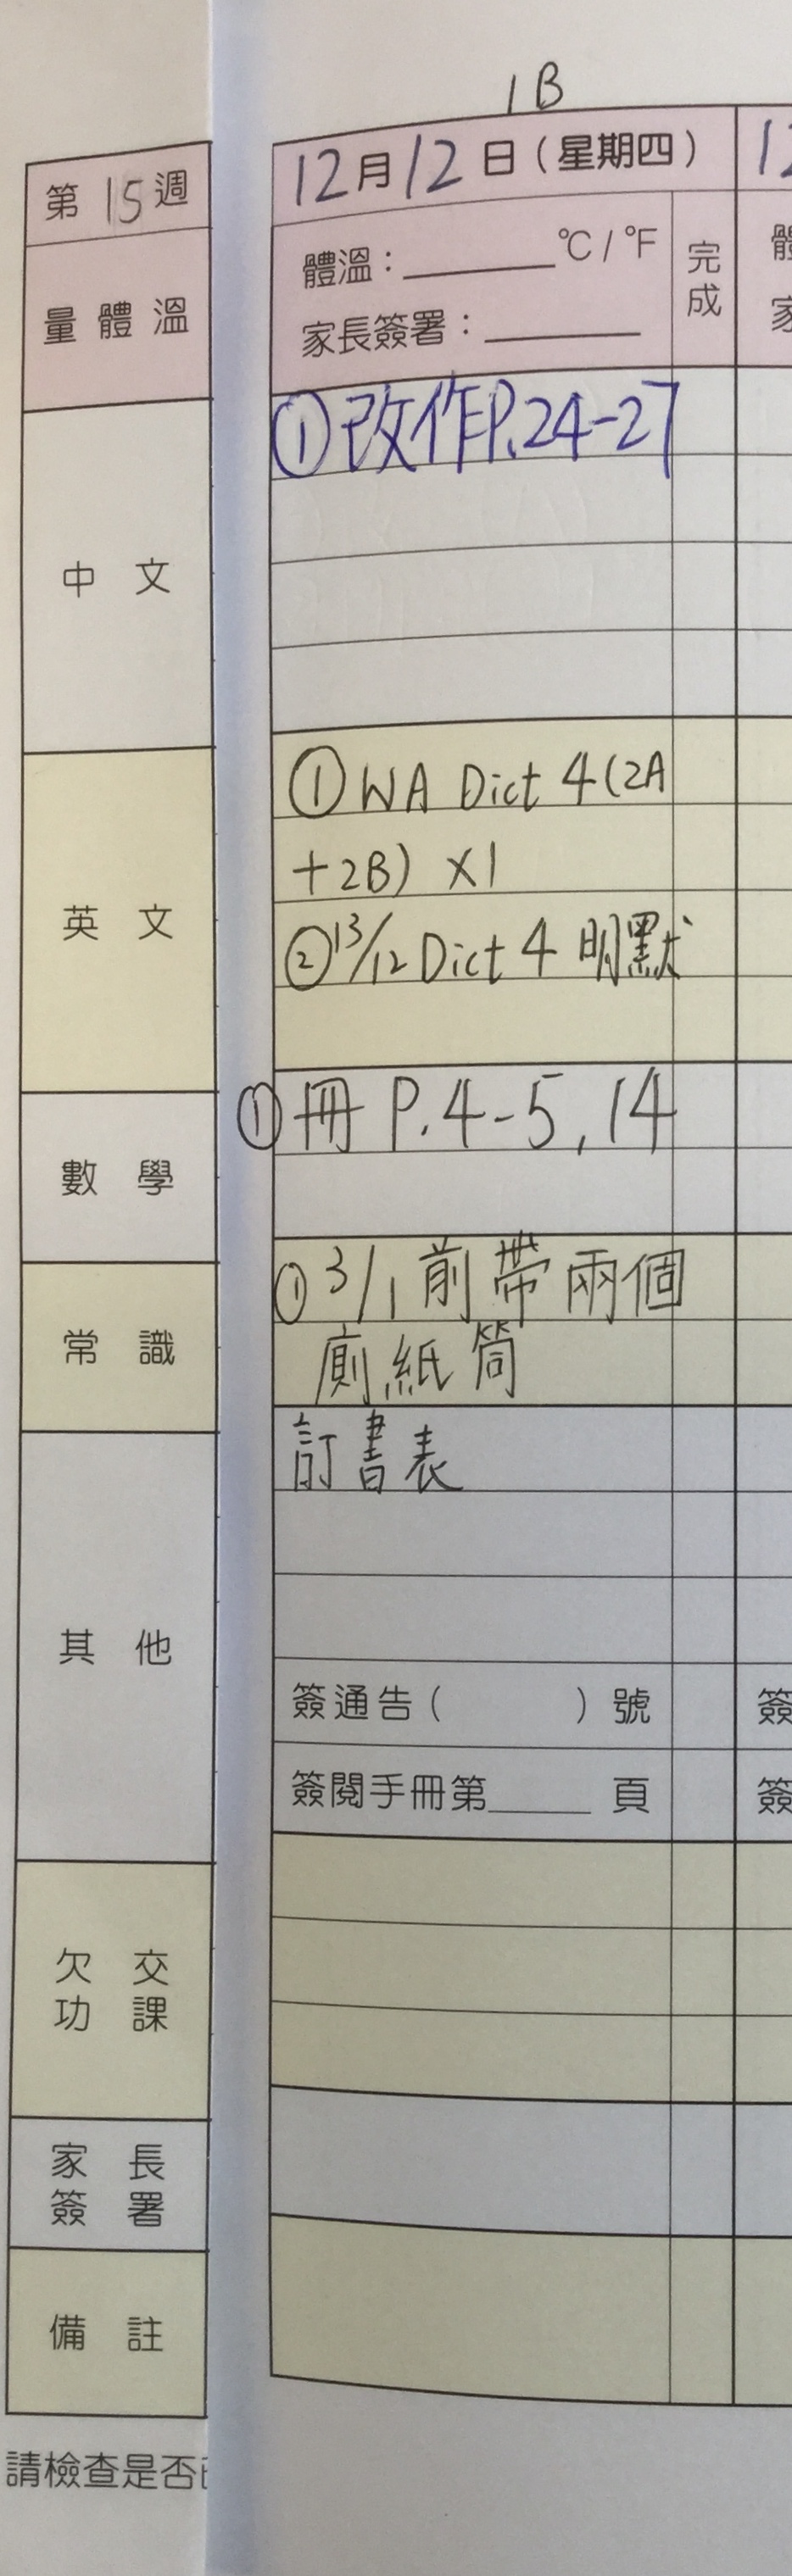 1B
第15週
12月12日(星期四)
12
量體溫
體溫：______°C/°F
完成
家長簽署：______
中文
①改作P.24-27
英文
①WA Dict 4(2A
+2B) X1
②13/12 Dict 4 明默
數學
①冊 P.4-5, 14
常識
①3/1前帶兩個
廁紙筒
其他
訂書表
簽通告(　　)號
簽
簽閱手冊第____頁
簽
欠交
功課
家長
簽署
備註
請檢查是否